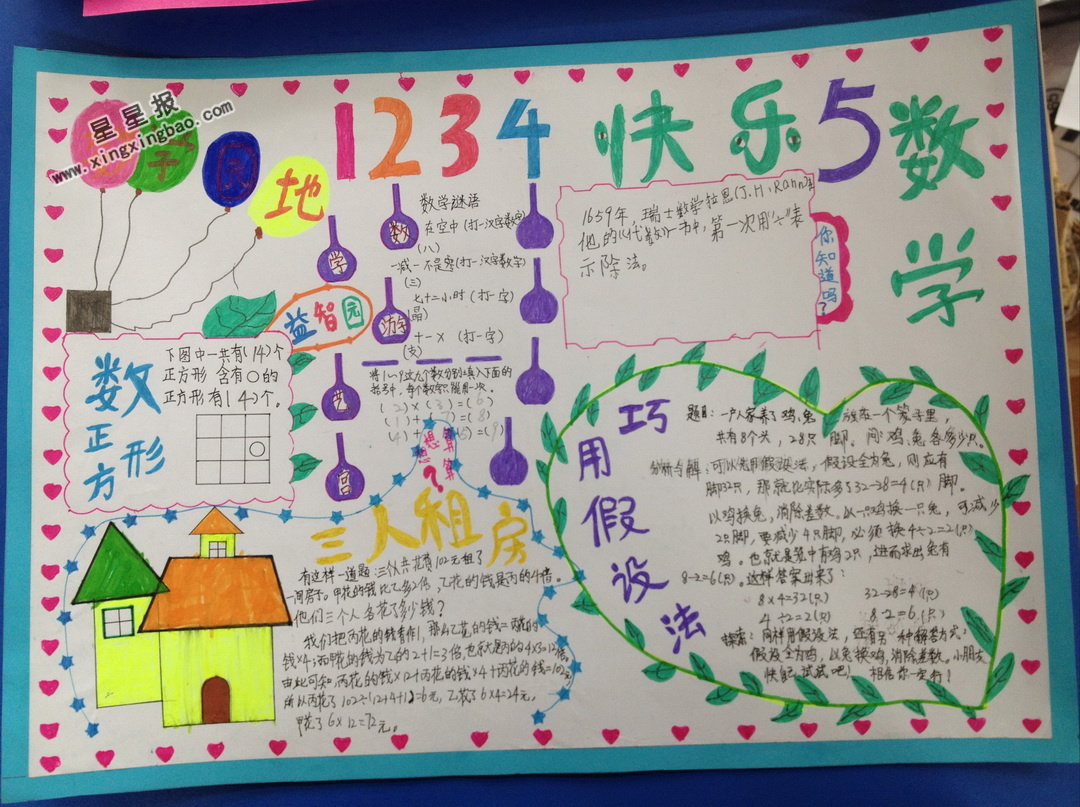 星星报
www.xingxingbao.com
学园地
1234快乐5数学
数学谜语
在空中(打一汉字数字)
(八)
减一不是零(打一汉字数字)
(三)
七十二小时(打一字)
(晶)
十一×(打一字)
(支)
数学游乐宫
益智园
1659年,瑞士数学拉恩(J.H.Rahn)在
他的《代数》一书中,第一次用"÷"表
示除法。
你知道吗?
数正方形
下图中一共有(14)个
正方形 含有○的
正方形有(4)个。
将1~9这九个数分别填入下面的
括号中,每个数字只能用一次。
(2)×(3)=(6)
(1)+(7)=(8)
(4)+(5)=(9)
想想算算?
三人租房
有这样一道题:三个人共花费102元租了
一间房子。甲花的钱比乙多2倍,乙花的钱是丙的4倍。
他们三个人各花了多少钱?
我们把丙花的钱看作1,那么乙花的钱=丙花的
钱×4;而甲花的钱为乙的2+1=3倍也就是丙的4×3=12倍。
由此可知,丙花的钱×12+丙花的钱×4+丙花的钱=102元
所以丙花了102÷(12+4+1)=6元,乙花了6×4=24元,
甲花了6×12=72元。
巧用假设法
题目:一户人家养了鸡、兔 放在一个笼子里,
共有8个头,28只脚。问鸡、兔各多少只。
分析与解:可以先用假设法,假设全为兔,则应有
脚32只,那就比实际多了32-28=4(只)脚。
以鸡换兔,消除差数。以一只鸡换一只兔,可减少
2只脚,要减少4只脚,必须换4÷2=2(只)
鸡。也就是笼中有鸡2只,进而求出兔有
8-2=6(只)。这样答案出来了:
8×4=32(只) 32-28=4(只)
4÷2=2(只) 8-2=6(只)
探索:同样用假设法,还有另一种解答方式:
假设全为鸡,以兔换鸡,消除差数。小朋友
快自己试试吧! 相信你一定行!